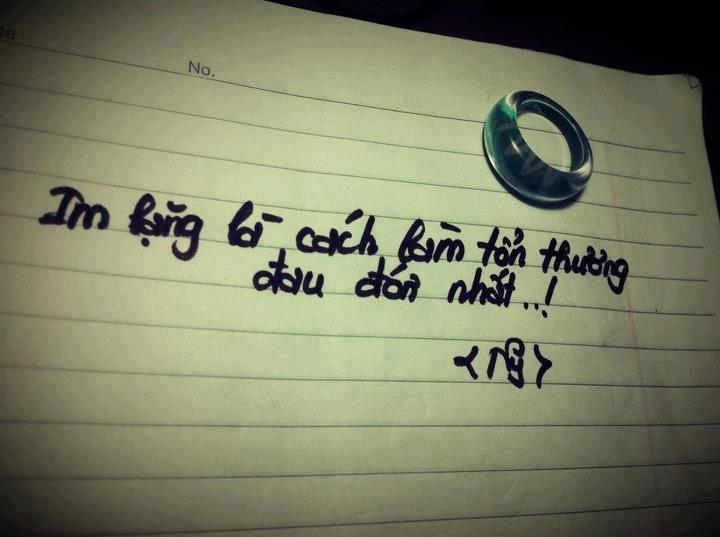 No.
Im lặng là cách làm tổn thương
đau đớn nhất..!